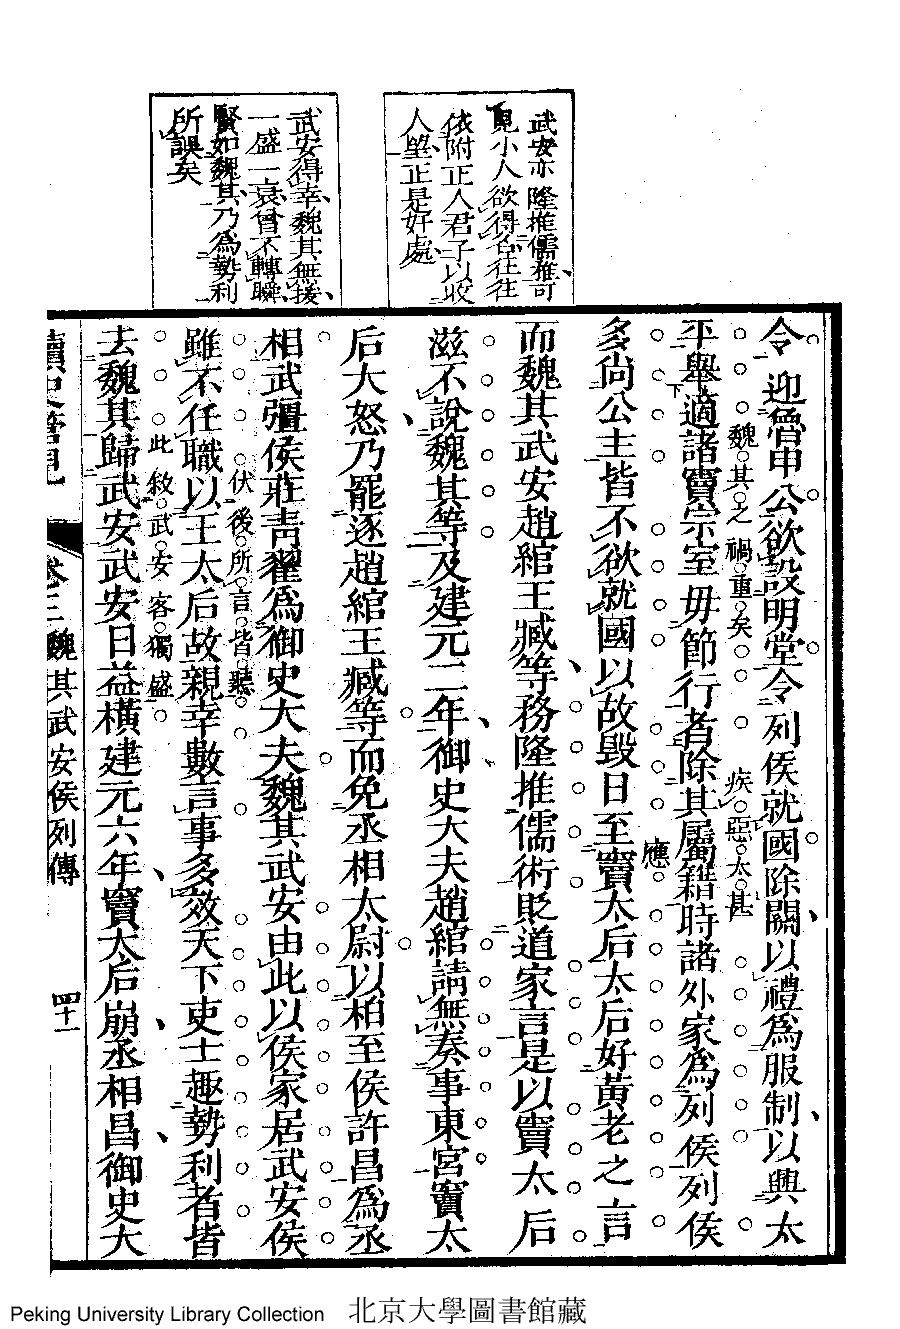 武安亦隆推儒雅可
見小人欲得名往往
依附正人君子以收
人望正是好處
武安得幸魏其無援
一盛一衰曾不轉瞬
賢如魏其乃為勢利
所誤矣
令迎魯申公欲設明堂令列侯就國除關以禮為服制以興太
魏其之禍重矣
疾惡太甚
平舉適諸竇宗室毋節行者除其屬籍時諸外家為列侯列侯
應
多尚公主皆不欲就國以故毀日至竇太后太后好黃老之言
而魏其武安趙綰王臧等務隆推儒術貶道家言是以竇太后
滋不說魏其等及建元二年御史大夫趙綰請無奏事東宮竇太
后大怒乃罷逐趙綰王臧等而免丞相太尉以柏至侯許昌為丞
相武彊侯莊青翟為御史大夫魏其武安由此以侯家居武安侯
伏後所言皆聽
雖不任職以王太后故親幸數言事多效天下吏士趣勢利者皆
此敘武安客獨盛
去魏其歸武安武安日益橫建元六年竇太后崩丞相昌御史大
讀史管見
卷三魏其武安侯列傳
四十一
Peking University Library Collection 北京大學圖書館藏